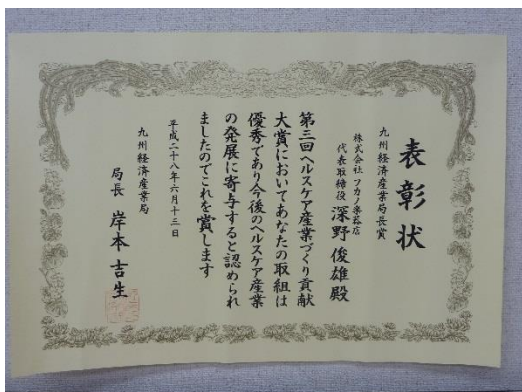 表彰状
九州経済産業局長賞
株式会社フカノ楽器店
代表取締役 深野俊雄殿
第三回ヘルスケア産業づくり貢献
大賞においてあなたの取組は
優秀であり今後のヘルスケア産業
の発展に寄与すると認められ
ましたのでこれを賞します
平成二十八年六月十三日
九州経済産業局
局長 岸本吉生